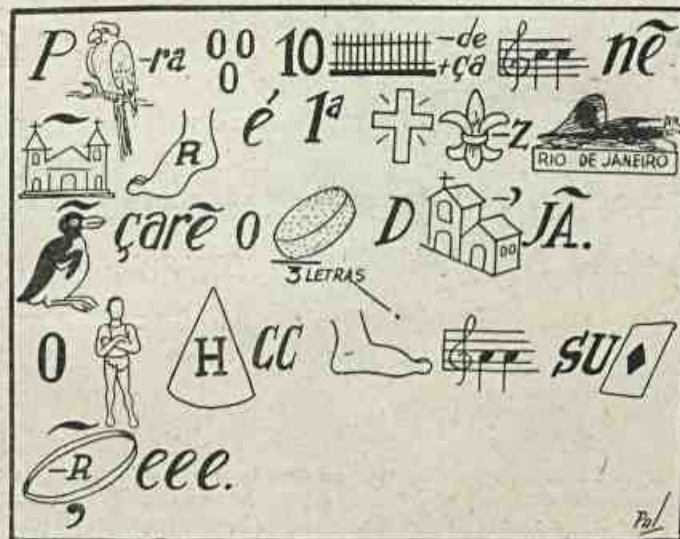 P -ra 000 10 -de +ça nẽ
R é 1ª z RIO DE JANEIRO
çarẽ o D -' JÃ.
3 LETRAS
O H CC SU
-R eee.
,